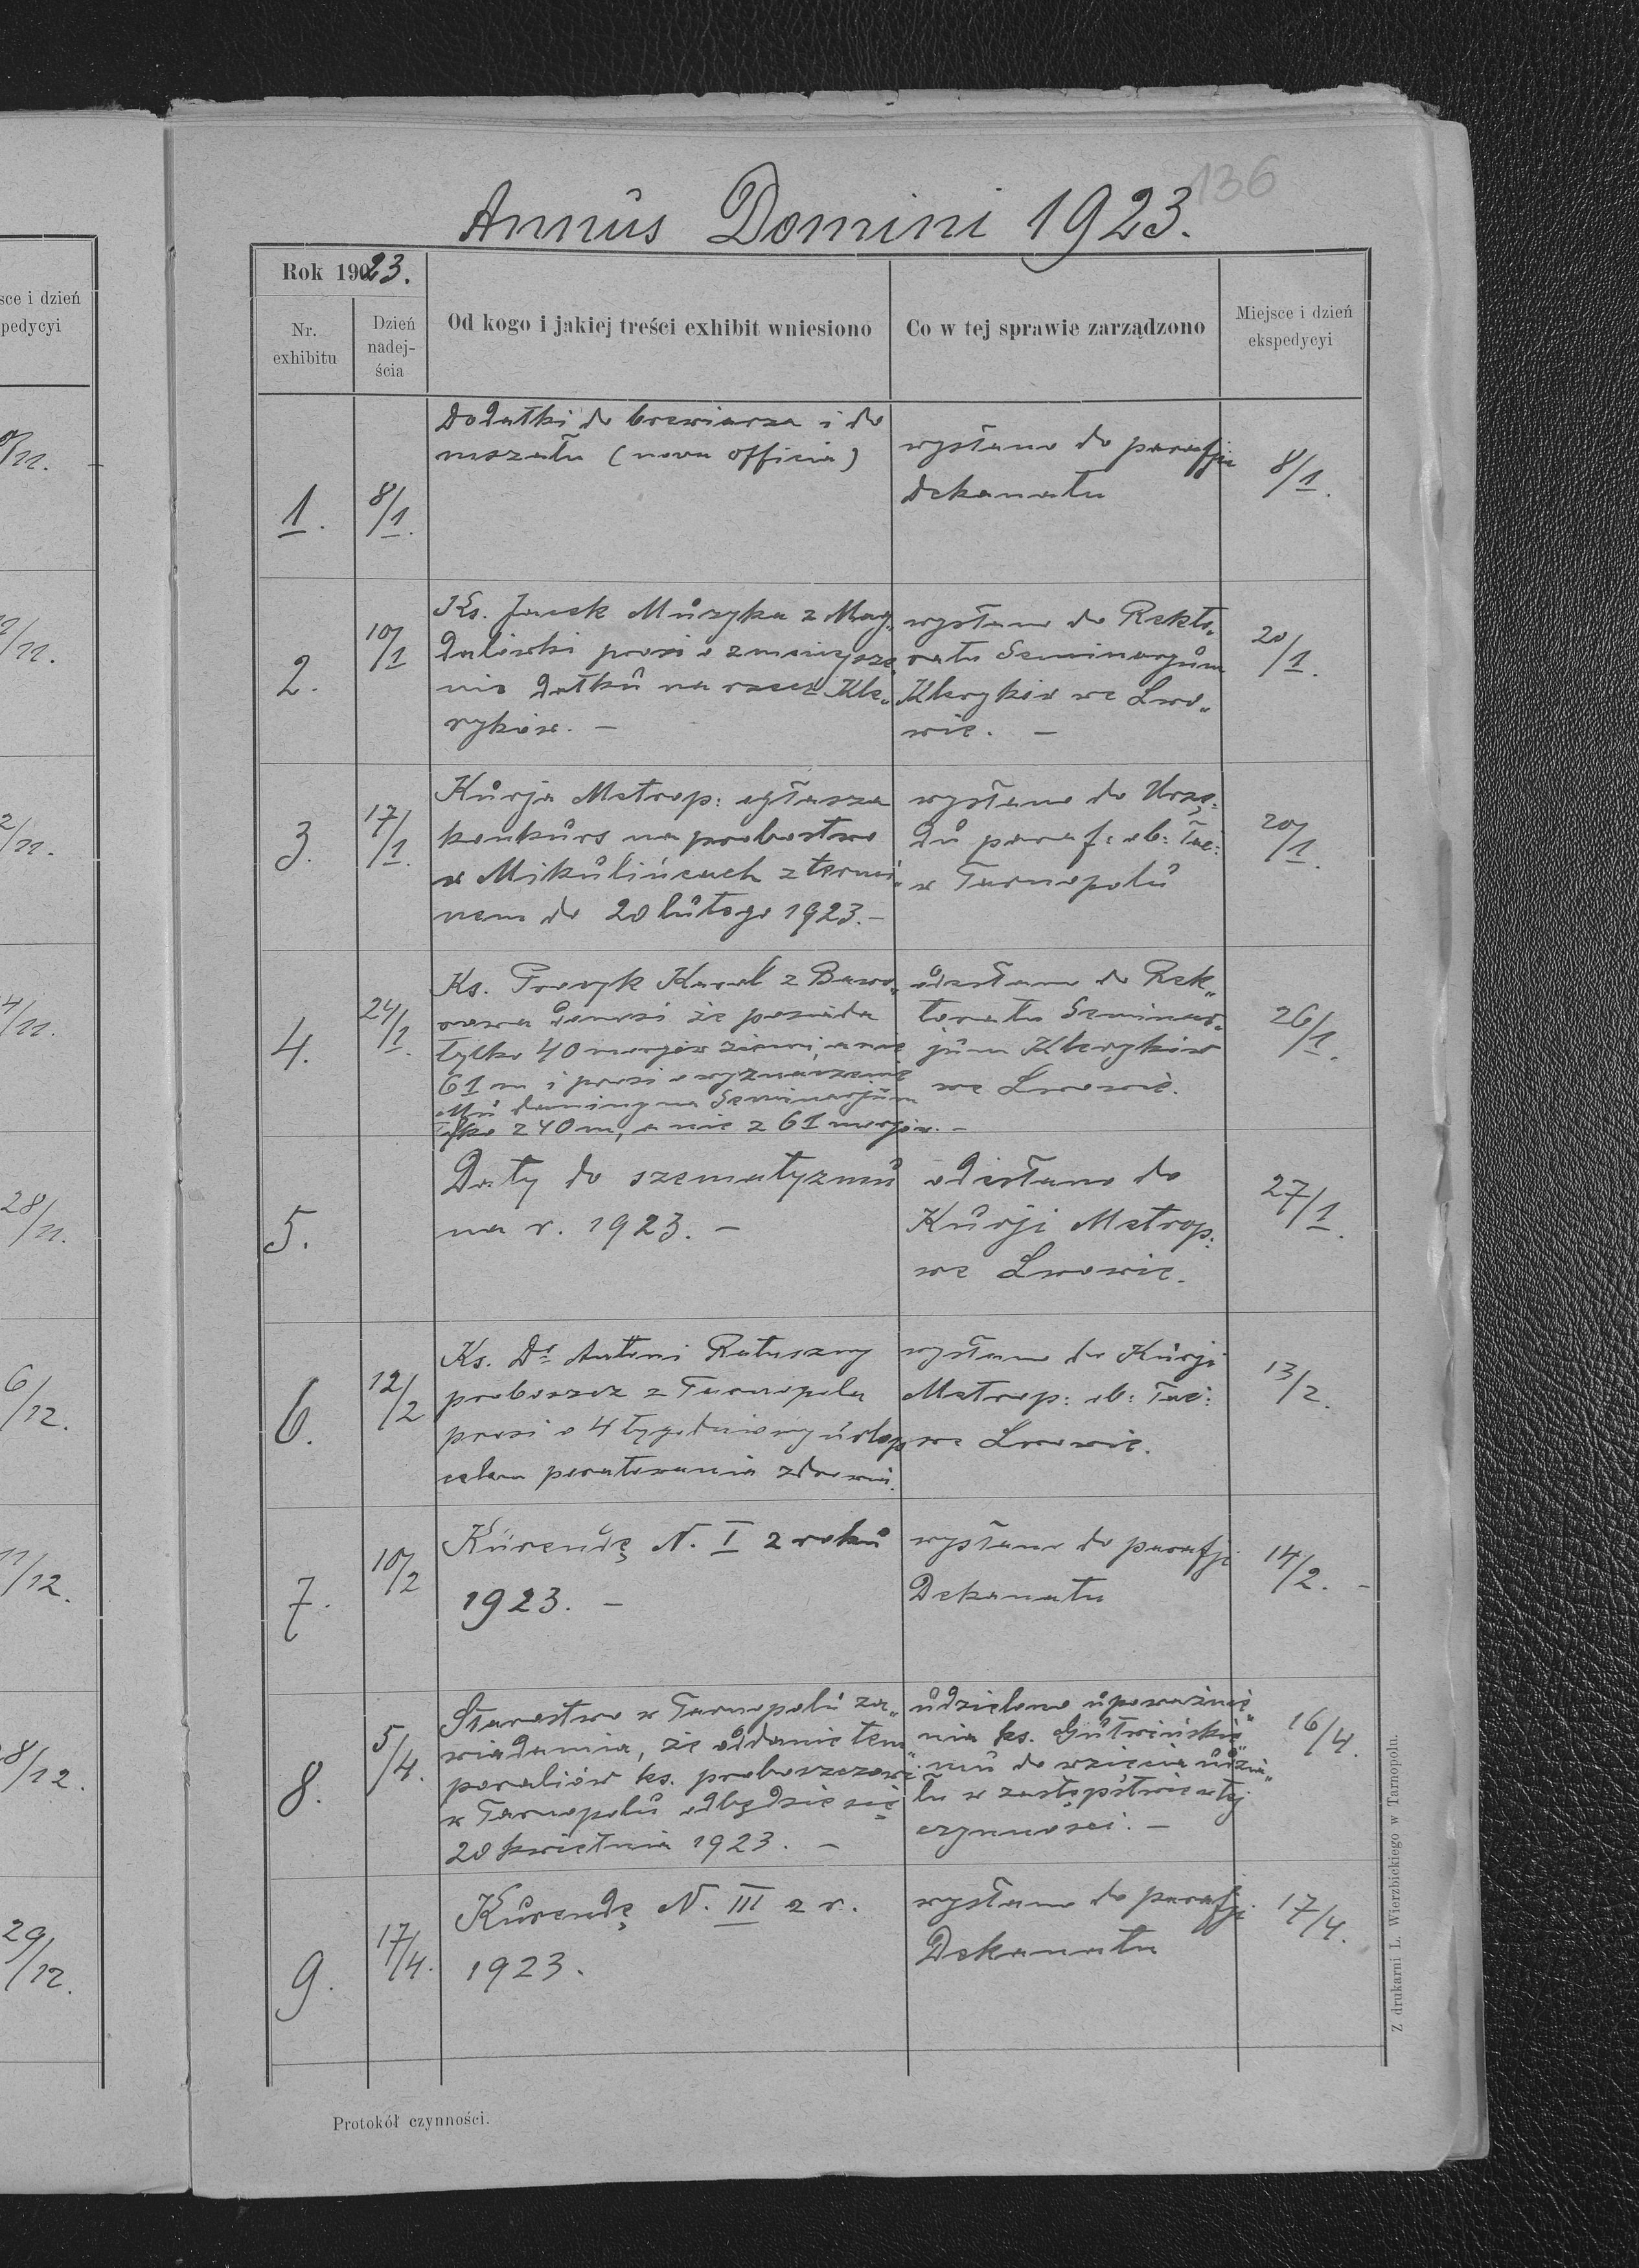 136
Annus Domini 1923.
Rok 1923.
Nr.
exhibitu
Dzień
nadej-
ścia
Od kogo i jakiej treści exhibit wniesiono
Co w tej sprawie zarządzono
Miejsce i dzień
ekspedycyi
1.
8/1.
Dodatki do brewiarza i do
mszału (nova officia)
wysłano do parafji
Dekanatu
8/1.
2.
10/1
Ks. Jacek Muzyka z Mag„
dalówki prosi o zmniejsze
nie datku na rzecz Kle„
ryków. –
wysłano do Rekto„
ratu Seminarjum
Kleryków we Lwo„
wie. –
20/1.
3.
17/1.
Kurja Metrop: ogłasza
konkurs na probostwo
w Mikulińcach z termi„
nem do 20 lutego 1923.–
wysłano do Urzę:
du paraf: ob: łac:
w Tarnopolu
20/1.
4.
24/1.
Ks. Karol z Bawo„
rowa donosi że posiada
tylko 40 morgów ziemi, a nie
61 m i prosi o wyznaczenie
Mu daniny na Seminarjum
tylko z 40 m, a nie z 61 morgów. –
odesłano do Rek„
toratu Seminar„
jum Kleryków
we Lwowie.
26/1.
5.
Daty do szematyzmu
na r. 1923. –
odesłano do
Kurji Metrop:
we Lwowie.
27/1.
6.
12/2
Ks. Dr Antoni Ratuszny
proboszcz z Tarnopola
prosi o 4 tygodniowy urlop
celem poratowania zdrowia.
wysłano do Kurji
Metrop: ob: łac:
we Lwowie.
13/2.
7.
10/2
Kurendę N. I z roku
1923. –
wysłano do parafji
Dekanatu
14/2. –
8.
5/4.
Starostwo w Tarnopolu za„
wiadamia, że oddanie tem„
poraliów ks. proboszczowi
w Tarnopolu odbędzie się
20 kwietnia 1923. –
udzielono upoważnie„
nia ks. Gutwińskie„
mu do wzięcia udzia„
łu w zastępstwie w tej
czynności. –
16/4.
9.
17/4.
Kurendę N. III z r.
1923.
wysłano do parafji
Dekanatu
17/4.
Protokół czynności.
Z drukarni L. Wierzbickiego w Tarnopolu.
sce i dzień
pedycyi
28/11.
6/12.
11/12.
29/12.